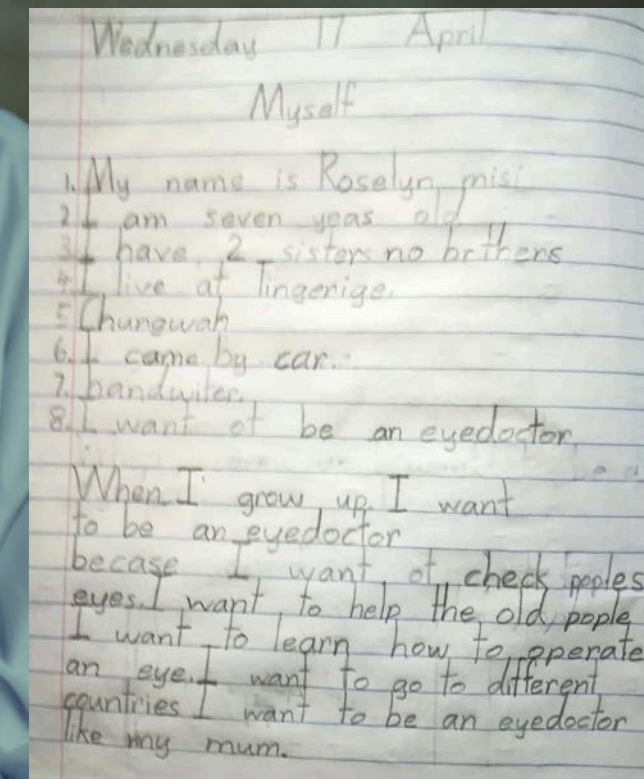 Wednesday 17 April
Myself
1. My name is Roselyn misi
2 I am seven yeas old
3 I have 2 sisters no brthers
4. I live at Tingerige.
5 Chungwah
6. I came by car.
7. bandwiter.
8. I want ot be an eyedoctor
When I grow up I want
to be an eyedoctor
becase I want ot check poples
eyes. I want to help the old pople
I want to learn how to operate
an eye. I want to go to different
countries I want to be an eyedoctor
like my mum.